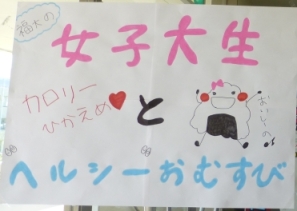 福大の
女子大生
カロリー
ひかえめ♥
と
おいしーの
ヘルシーおむすび